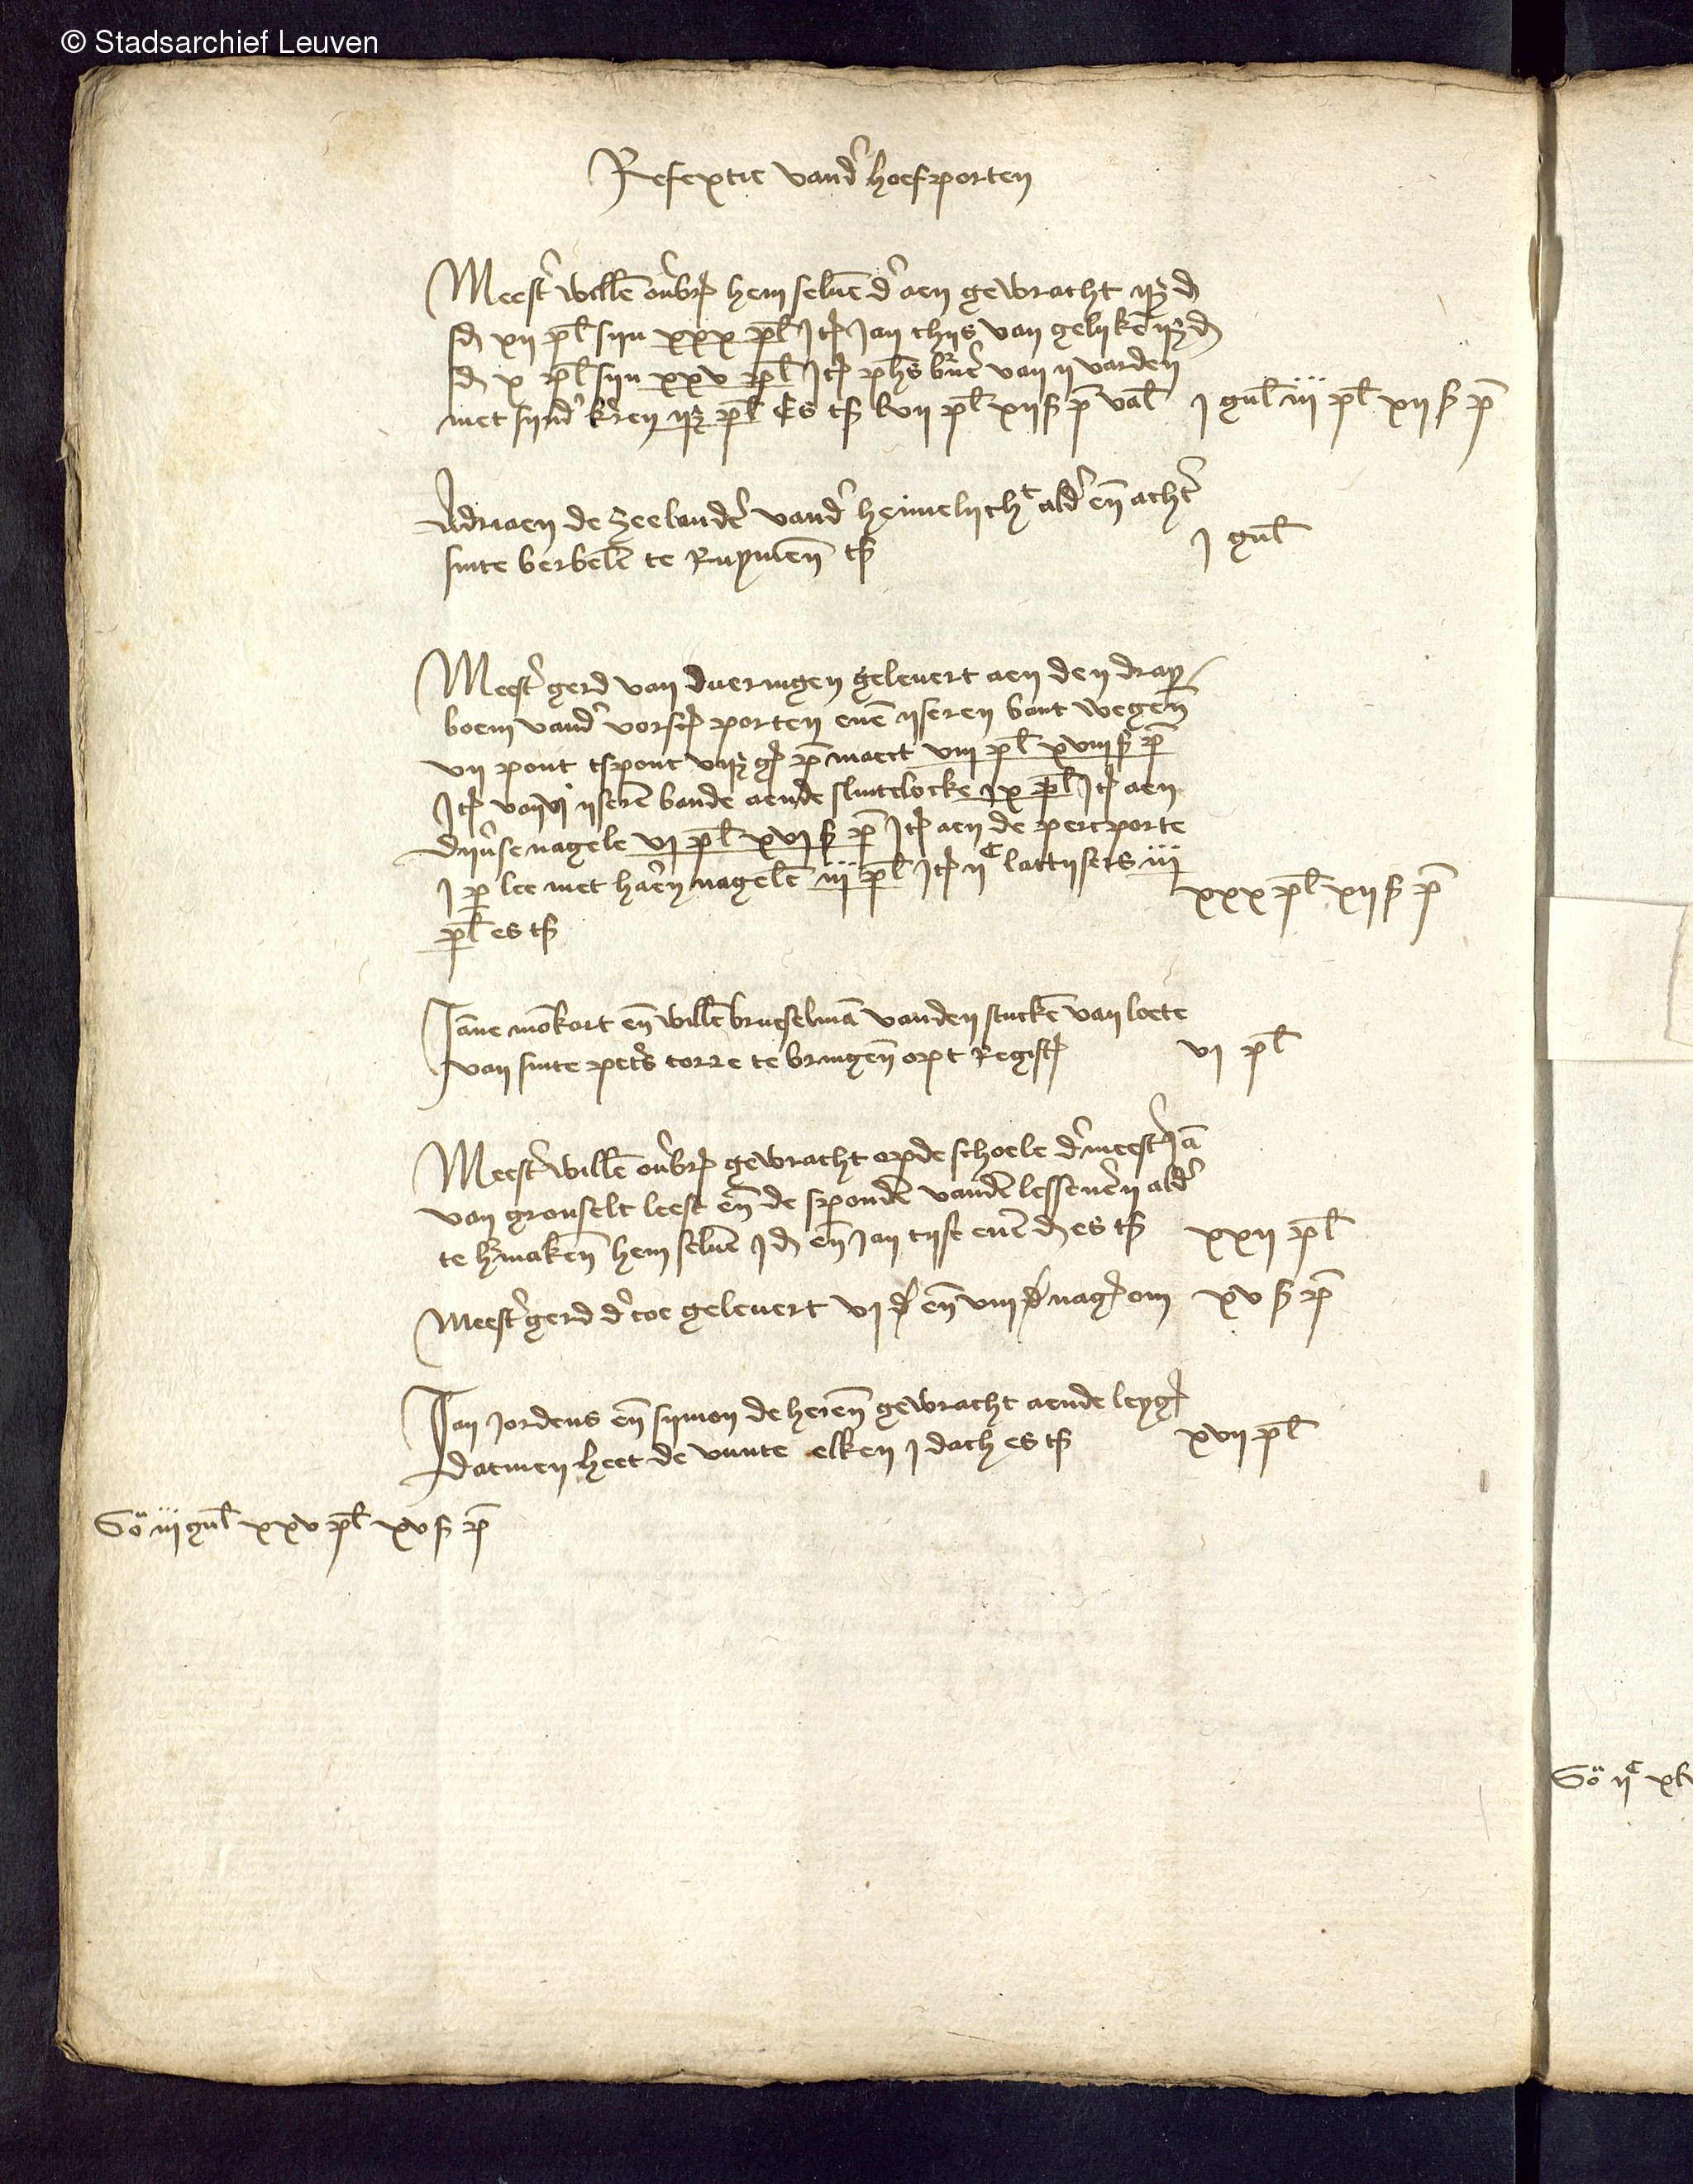 © Stadsarchief Leuven
Refextie vand' hoefporten
Meest' wille ov'br hem selve d' aen gewracht
xii pl sijn xxx pl Jt Jan thijs van gelijke
x pl sijn xxv pl Jt phs van ii varden
met sijnd' pl Es ts lvii pl xii s p val j gul iii pl xii s p
Adriaen de Zeelander vand' heimelijcht ald' en acht'
sinte berbele te Ruymen ts j gul
Meest' gerd van dueringen gelevert aen den drayboem vand' vors porten enen yseren bant wegen
vii pont tspont p maect viii pl xviii s p
Jt van vi yseren bande aende slutelocke ix pl Jt aen
nagele vi pl xvi s p Jt aen de percporte
j met haren nagelen iii pl Jt ii c lattysers iii
pl es ts xxx pl xii s p
Janne monkart en willem brueselman vanden stucken van loete
van sinte peters torre te bringen opt Regist' vi pl
Meest' wille ov'br gewracht opde schoele d' meest' Jan
van gronselt leest en de sponden vanden lessenen ald'
te maken hem selven j d en Jan tijst enen d es ts xxii pl
Meest' gerd d' toe gelevert vi en viii nag om xv s p
Jan Jordens en symon de heren gewracht aende
datmen heet de vunte elken j dach es ts xvii pl
So iii gul xxv pl xv s p
So ii c